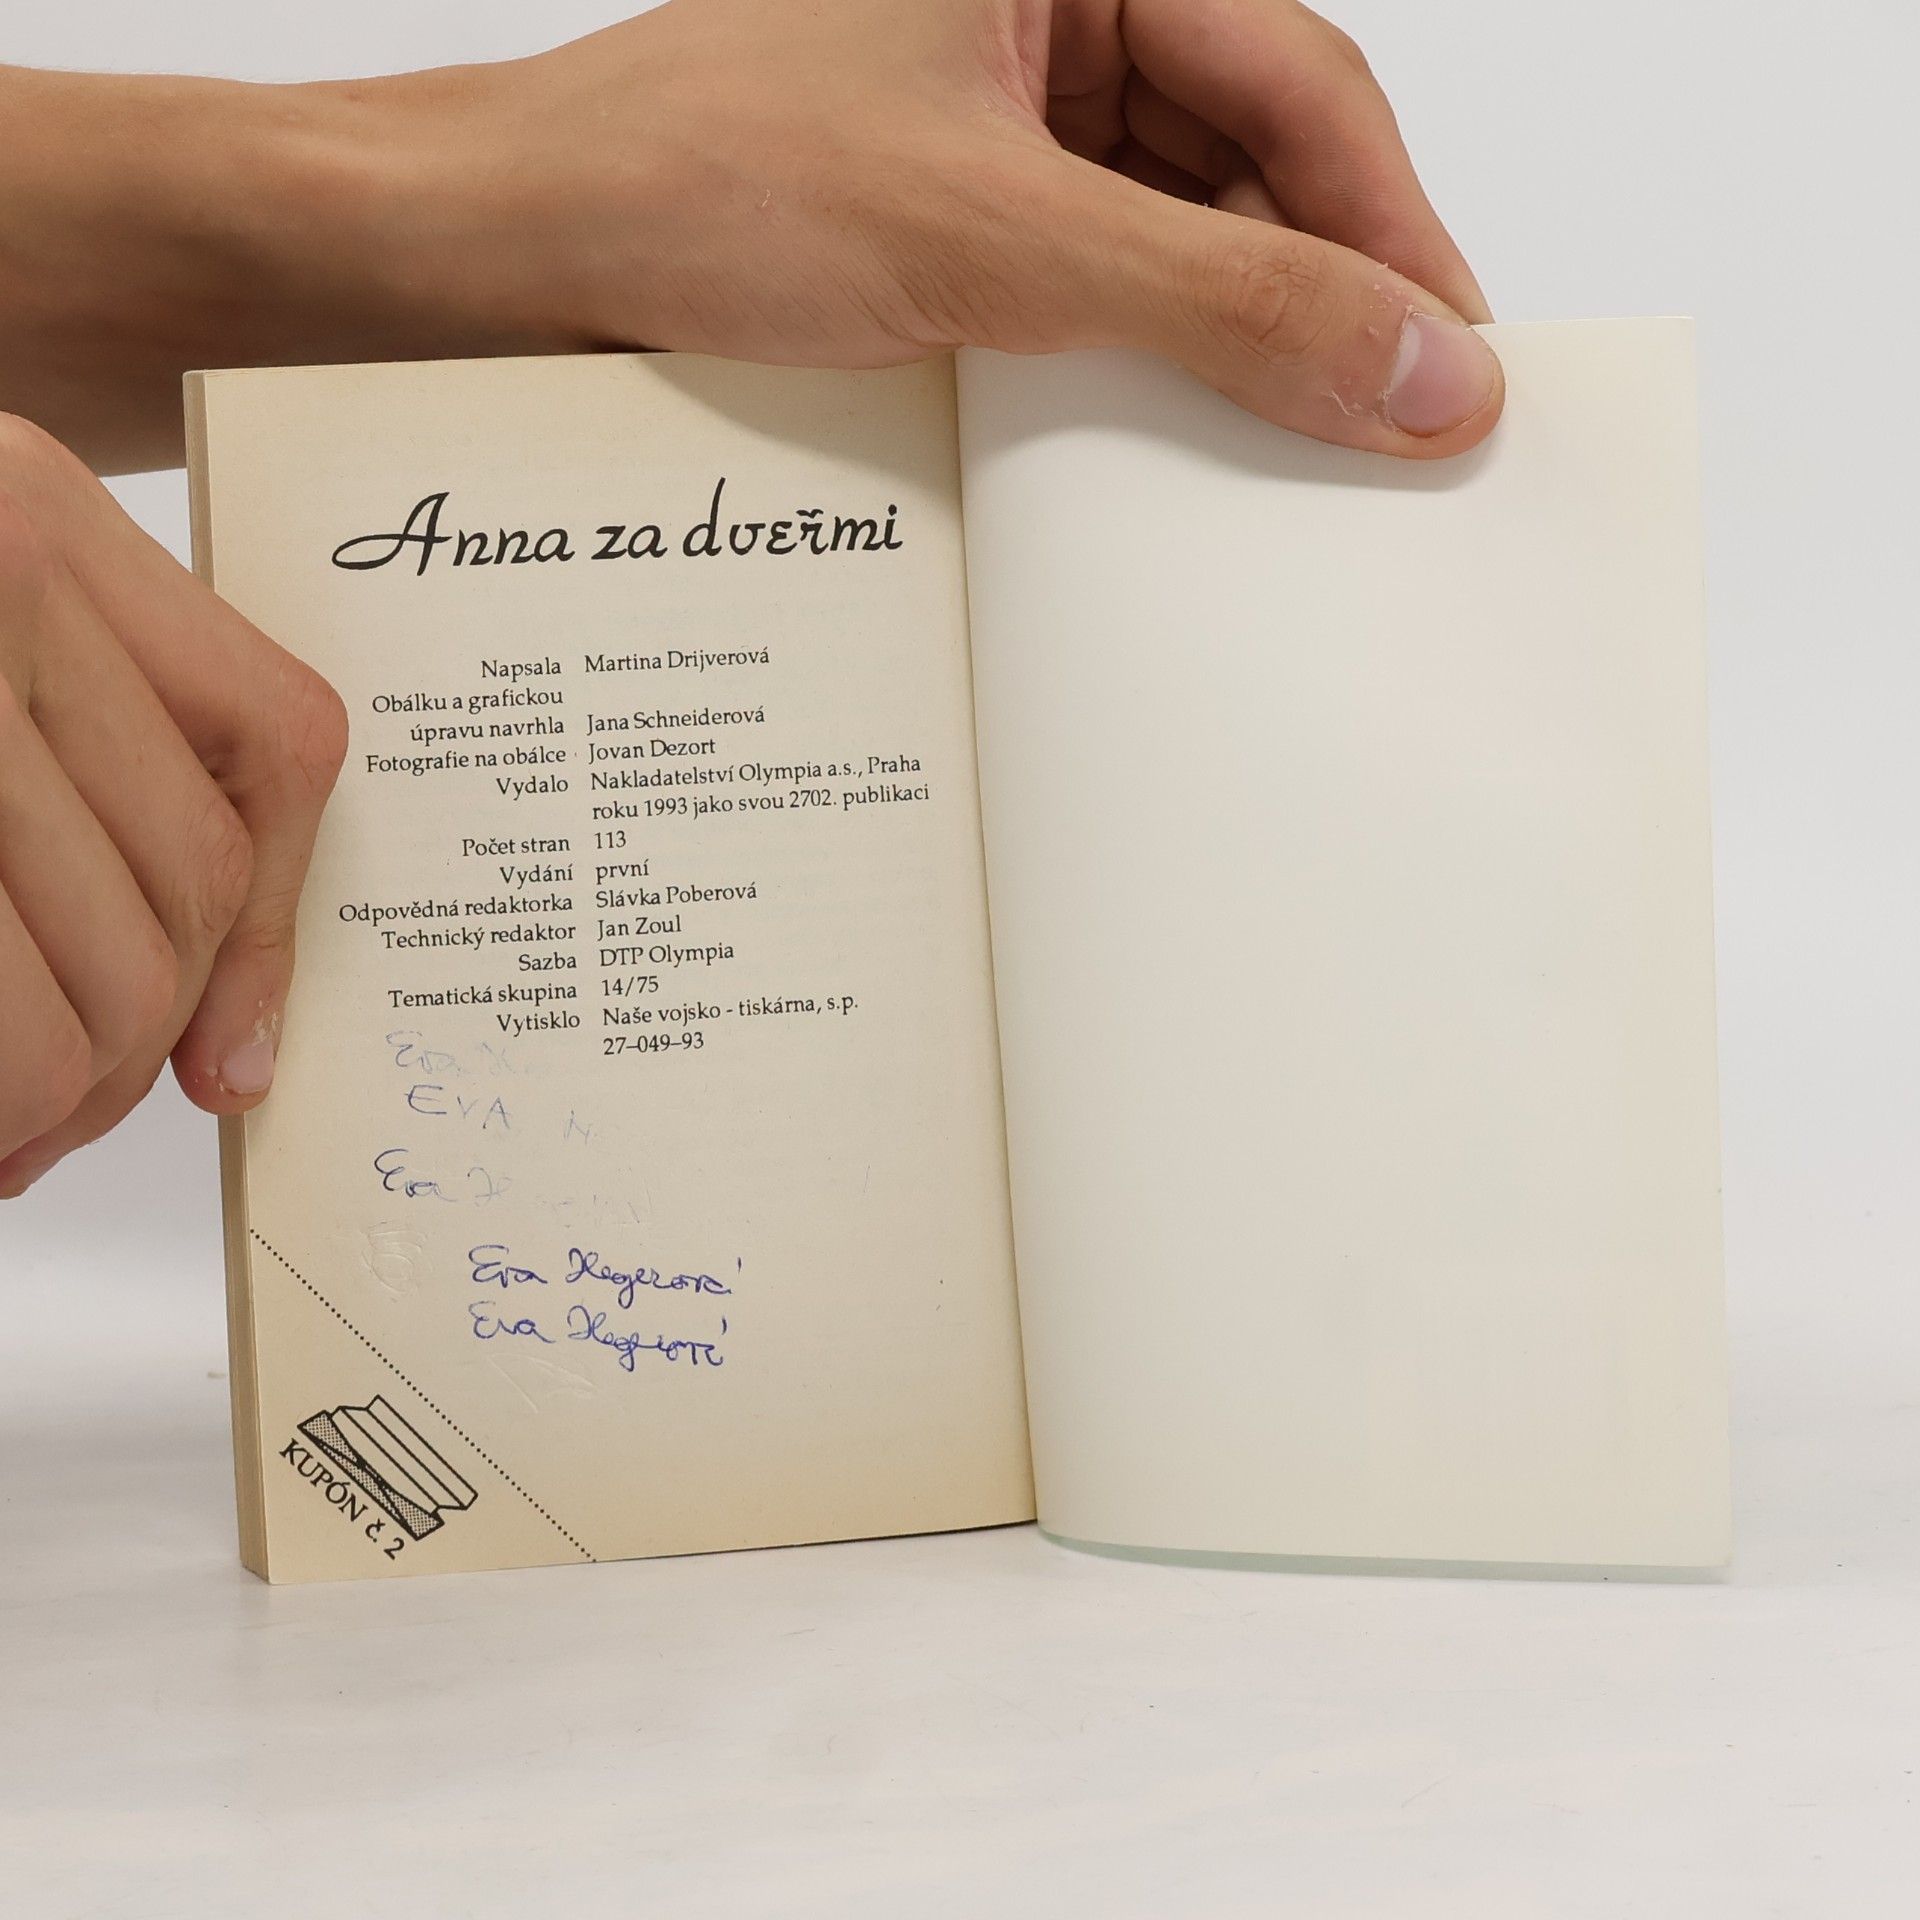 Anna za dveřmi
Napsala Martina Drijverová
Obálku a grafickou
úpravu navrhla Jana Schneiderová
Fotografie na obálce Jovan Dezort
Vydalo Nakladatelství Olympia a.s., Praha
roku 1993 jako svou 2702. publikaci
Počet stran 113
Vydání první
Odpovědná redaktorka Slávka Poberová
Technický redaktor Jan Zoul
Sazba DTP Olympia
Tematická skupina 14/75
Vytisklo Naše vojsko - tiskárna, s.p.
27–049–93
Eva H
EVA
Eva H
Eva Hegerová
Eva Hegerová
KUPÓN č. 2